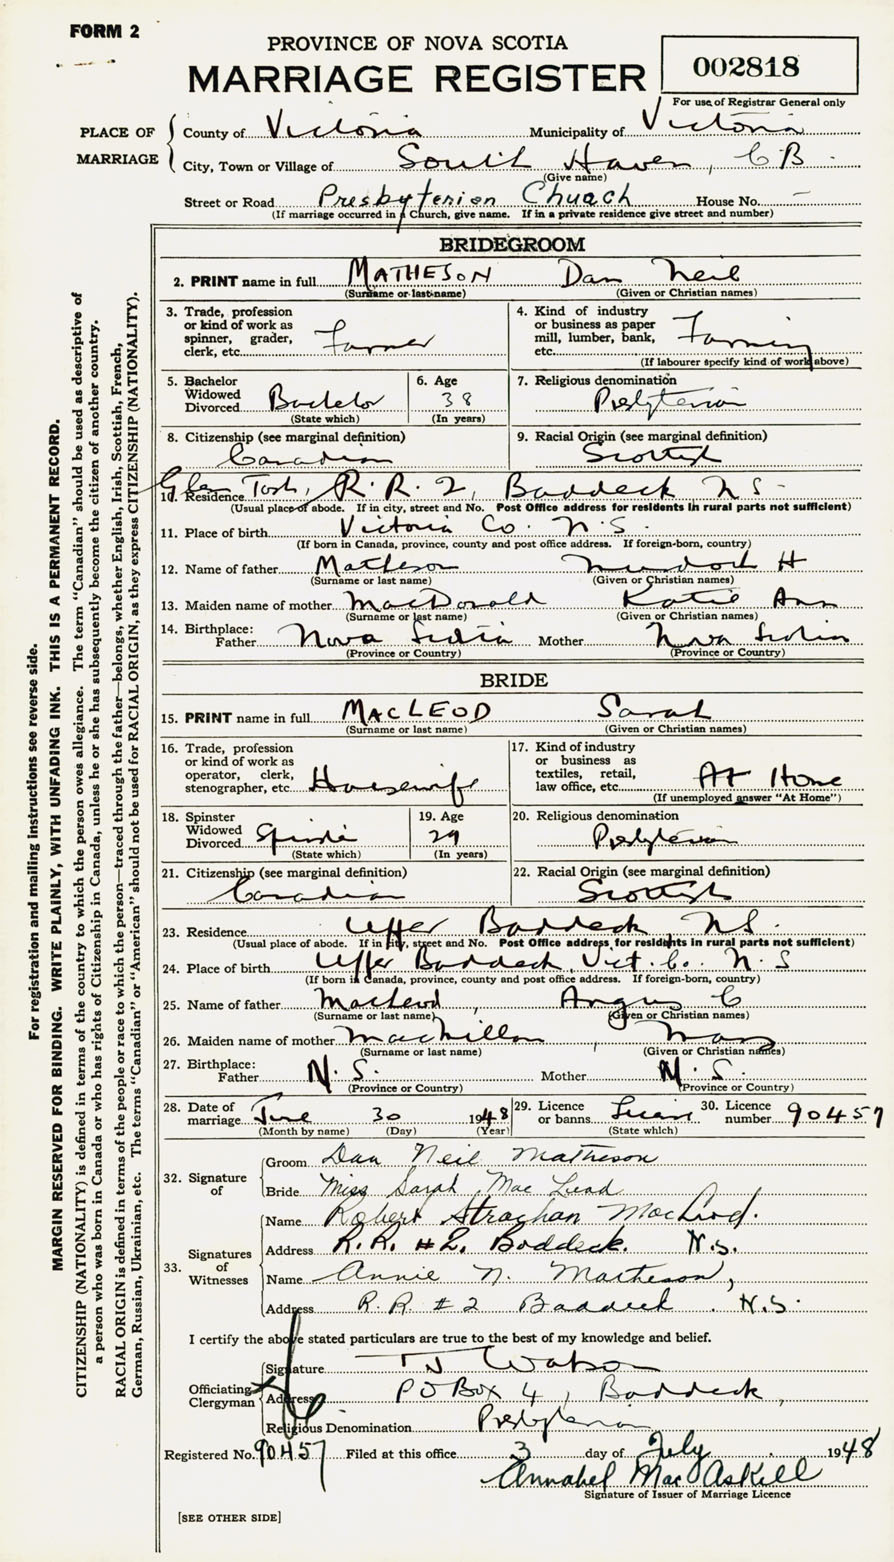 FORM 2
PROVINCE OF NOVA SCOTIA
MARRIAGE REGISTER
002818
For use of Registrar General only
PLACE OF MARRIAGE
County of Victoria Municipality of Victoria
City, Town or Village of South Haven, C B
(Give name)
Street or Road Presbyterian Church House No. —
(If marriage occurred in a Church, give name. If in a private residence give street and number)
BRIDEGROOM
2. PRINT name in full MATHESON Dan Neil
(Surname or last name) (Given or Christian names)
3. Trade, profession or kind of work as spinner, grader, clerk, etc. Farmer
4. Kind of industry or business as paper mill, lumber, bank, etc. Farming
(If labourer specify kind of work above)
5. Bachelor Widowed Divorced Bachelor
(State which)
6. Age 38
(In years)
7. Religious denomination Presbyterian
8. Citizenship (see marginal definition) Canadian
9. Racial Origin (see marginal definition) Scottish
10. Residence Glen Tosh, R. R. 2, Baddeck N S
(Usual place of abode. If in city, street and No. Post Office address for residents in rural parts not sufficient)
11. Place of birth Victoria Co. N. S.
(If born in Canada, province, county and post office address. If foreign-born, country)
12. Name of father Matheson Murdoch H
(Surname or last name) (Given or Christian names)
13. Maiden name of mother MacDonald Katie Ann
(Surname or last name) (Given or Christian names)
14. Birthplace: Father Nova Scotia Mother Nova Scotia
(Province or Country) (Province or Country)
BRIDE
15. PRINT name in full MACLEOD Sarah
(Surname or last name) (Given or Christian names)
16. Trade, profession or kind of work as operator, clerk, stenographer, etc. Housewife
17. Kind of industry or business as textiles, retail, law office, etc. At Home
(If unemployed answer "At Home")
18. Spinster Widowed Divorced
(State which)
19. Age 29
(In years)
20. Religious denomination Presbyterian
21. Citizenship (see marginal definition) Canadian
22. Racial Origin (see marginal definition) Scottish
23. Residence Upper Baddeck, N S.
(Usual place of abode. If in city, street and No. Post Office address for residents in rural parts not sufficient)
24. Place of birth Upper Baddeck, Vict. Co. N. S
(If born in Canada, province, county and post office address. If foreign-born, country)
25. Name of father MacLeod, Angus C
(Surname or last name) (Given or Christian names)
26. Maiden name of mother MacMillan, Mary
(Surname or last name) (Given or Christian names)
27. Birthplace: Father N. S. Mother N. S.
(Province or Country) (Province or Country)
28. Date of marriage June 30 1948
(Month by name) (Day) (Year)
29. Licence or banns
(State which)
30. Licence number 90457
32. Signature of
Groom Dan Neil Matheson
Bride Miss Sarah MacLeod
33. Signatures of Witnesses
Name Robert Strachan MacLeod.
Address R.R. #2. Baddeck. N.S.
Name Annie N. Matheson,
Address R.R. #2 Baddeck. N.S.
I certify the above stated particulars are true to the best of my knowledge and belief.
Officiating Clergyman
Signature Watson
Address P O Box 4, Baddeck,
Religious Denomination Presbyterian
Registered No. 90457 Filed at this office 3 day of July 1948
Annabel MacAskill
Signature of Issuer of Marriage Licence
[SEE OTHER SIDE]
For registration and mailing instructions see reverse side.
MARGIN RESERVED FOR BINDING. WRITE PLAINLY, WITH UNFADING INK. THIS IS A PERMANENT RECORD.
CITIZENSHIP (NATIONALITY) is defined in terms of the country to which the person owes allegiance. The term "Canadian" should be used as descriptive of
a person who was born in Canada or who has rights of Citizenship in Canada, unless he or she has subsequently become the citizen of another country.
RACIAL ORIGIN is defined in terms of the people or race to which the person—traced through the father—belongs, whether English, Irish, Scottish, French,
German, Russian, Ukrainian, etc. The terms "Canadian" or "American" should not be used for RACIAL ORIGIN, as they express CITIZENSHIP (NATIONALITY).